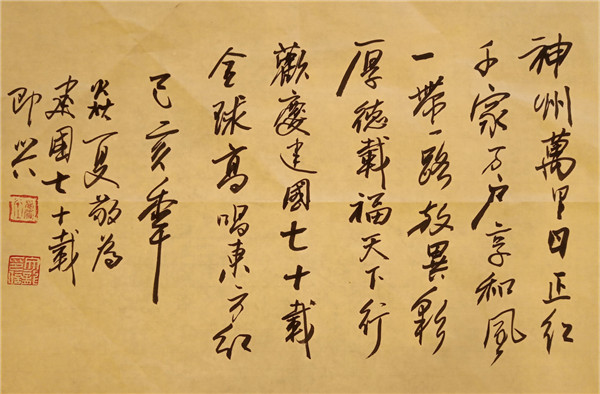 神州萬里日正红
千家万户享和風
一带一路放異彩
厚德載福天下行
歡慶建國七十載
全球高唱東方红
己亥年
炎秋夏敬為
建國七十載
即兴